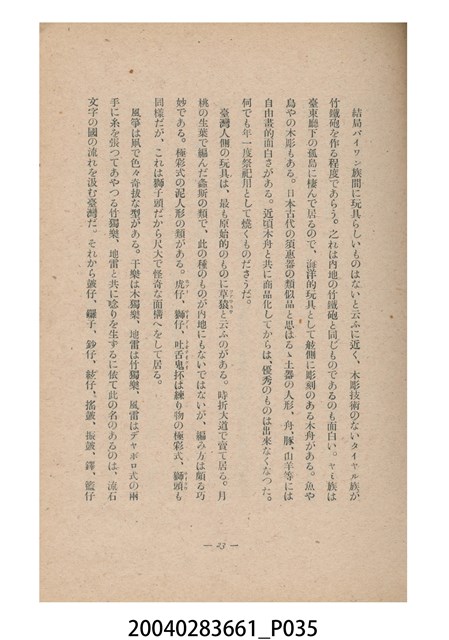 結局パイワン族間に玩具らしいものはないと云ふに近く、木彫技術のないタイヤル族が、
竹鐵砲を作る程度であらう。之れは内地の竹鐵砲と同じものであるのも面白い。ヤミ族は
臺東廳下の孤島に棲んで居るので、海洋的玩具として舷側に彫刻のある木舟がある。魚や
鳥やの木彫もある。日本古代の須惠器の類似品と思はるゝ土器の人形、舟、豚、山羊等には
自由畫的面白さがある。近頃木舟と共に商品化してからは、優秀のものは出來なくなつた。
何でも年一度祭祀用として燒くものださうだ。
臺灣人側の玩具は、最も原始的のものに草蜢と云ふのがある。時折大道で賣て居る。月
桃の生葉で編んだ螽斯の類で、此の種のものが内地にもないではないが、編み方は頗る巧
妙である。極彩式の泥人形の類がある。虎仔、獅仔、吐舌鬼抔は練り物の極彩式、獅頭も
同樣だが、これは獅子頭だから尺大で怪奇な面構へをして居る。
風箏は凧で色々奇拔な型がある。干樂は木獨樂、地雷は竹獨樂、風雷はデャボロ式の兩
手に糸を張つてあやつる竹獨樂、地雷と共に唸りを生ずるに依て此の名のあるのは、流石
文字の國の流れを汲む臺灣だ。それから皷仔、囉子、鈔仔、絃仔、搖皷、振皷、鐸、籃仔
— 23 —
20040283661_P035